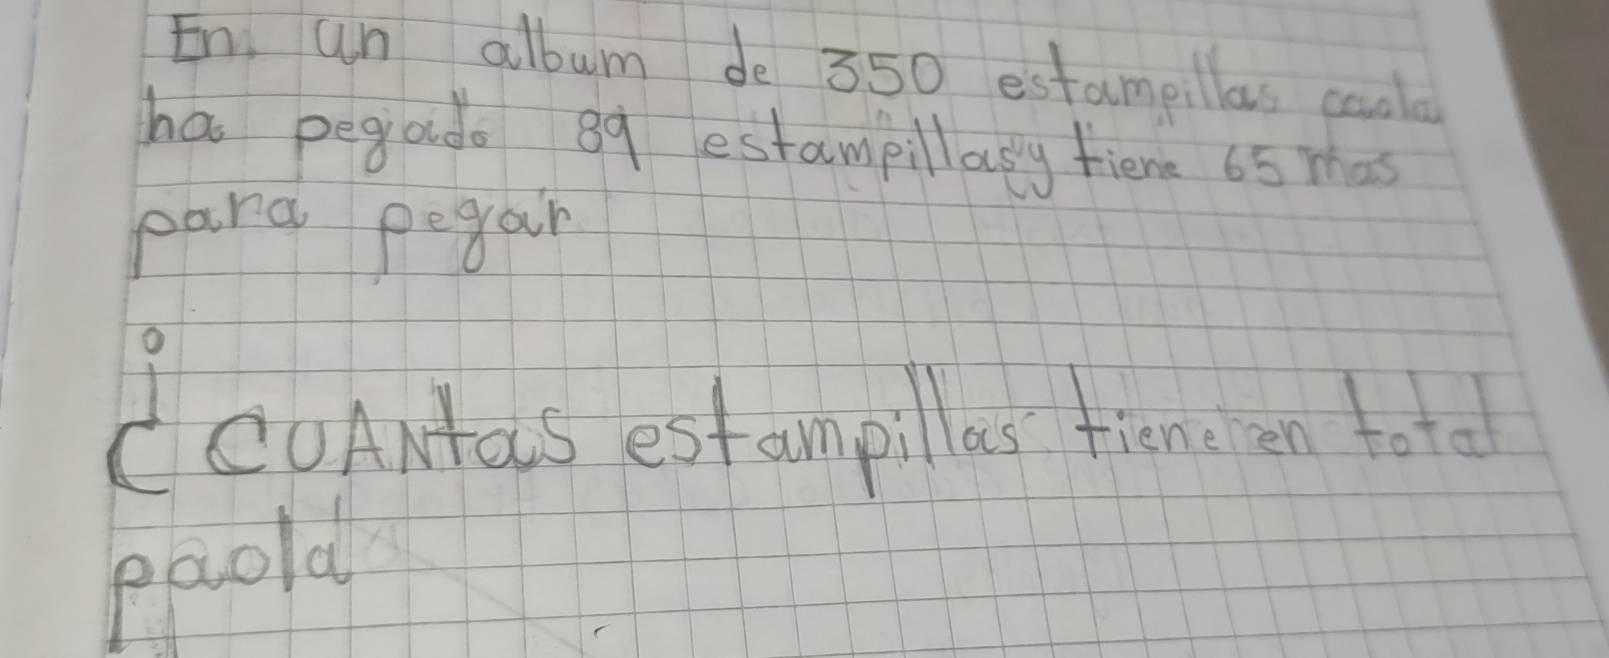 En un album de 350 estampillas paola
ha pegado 89 estampillas y tiene 65 mas
para pegar
¿CUANtas estampillas tiene en total
paola